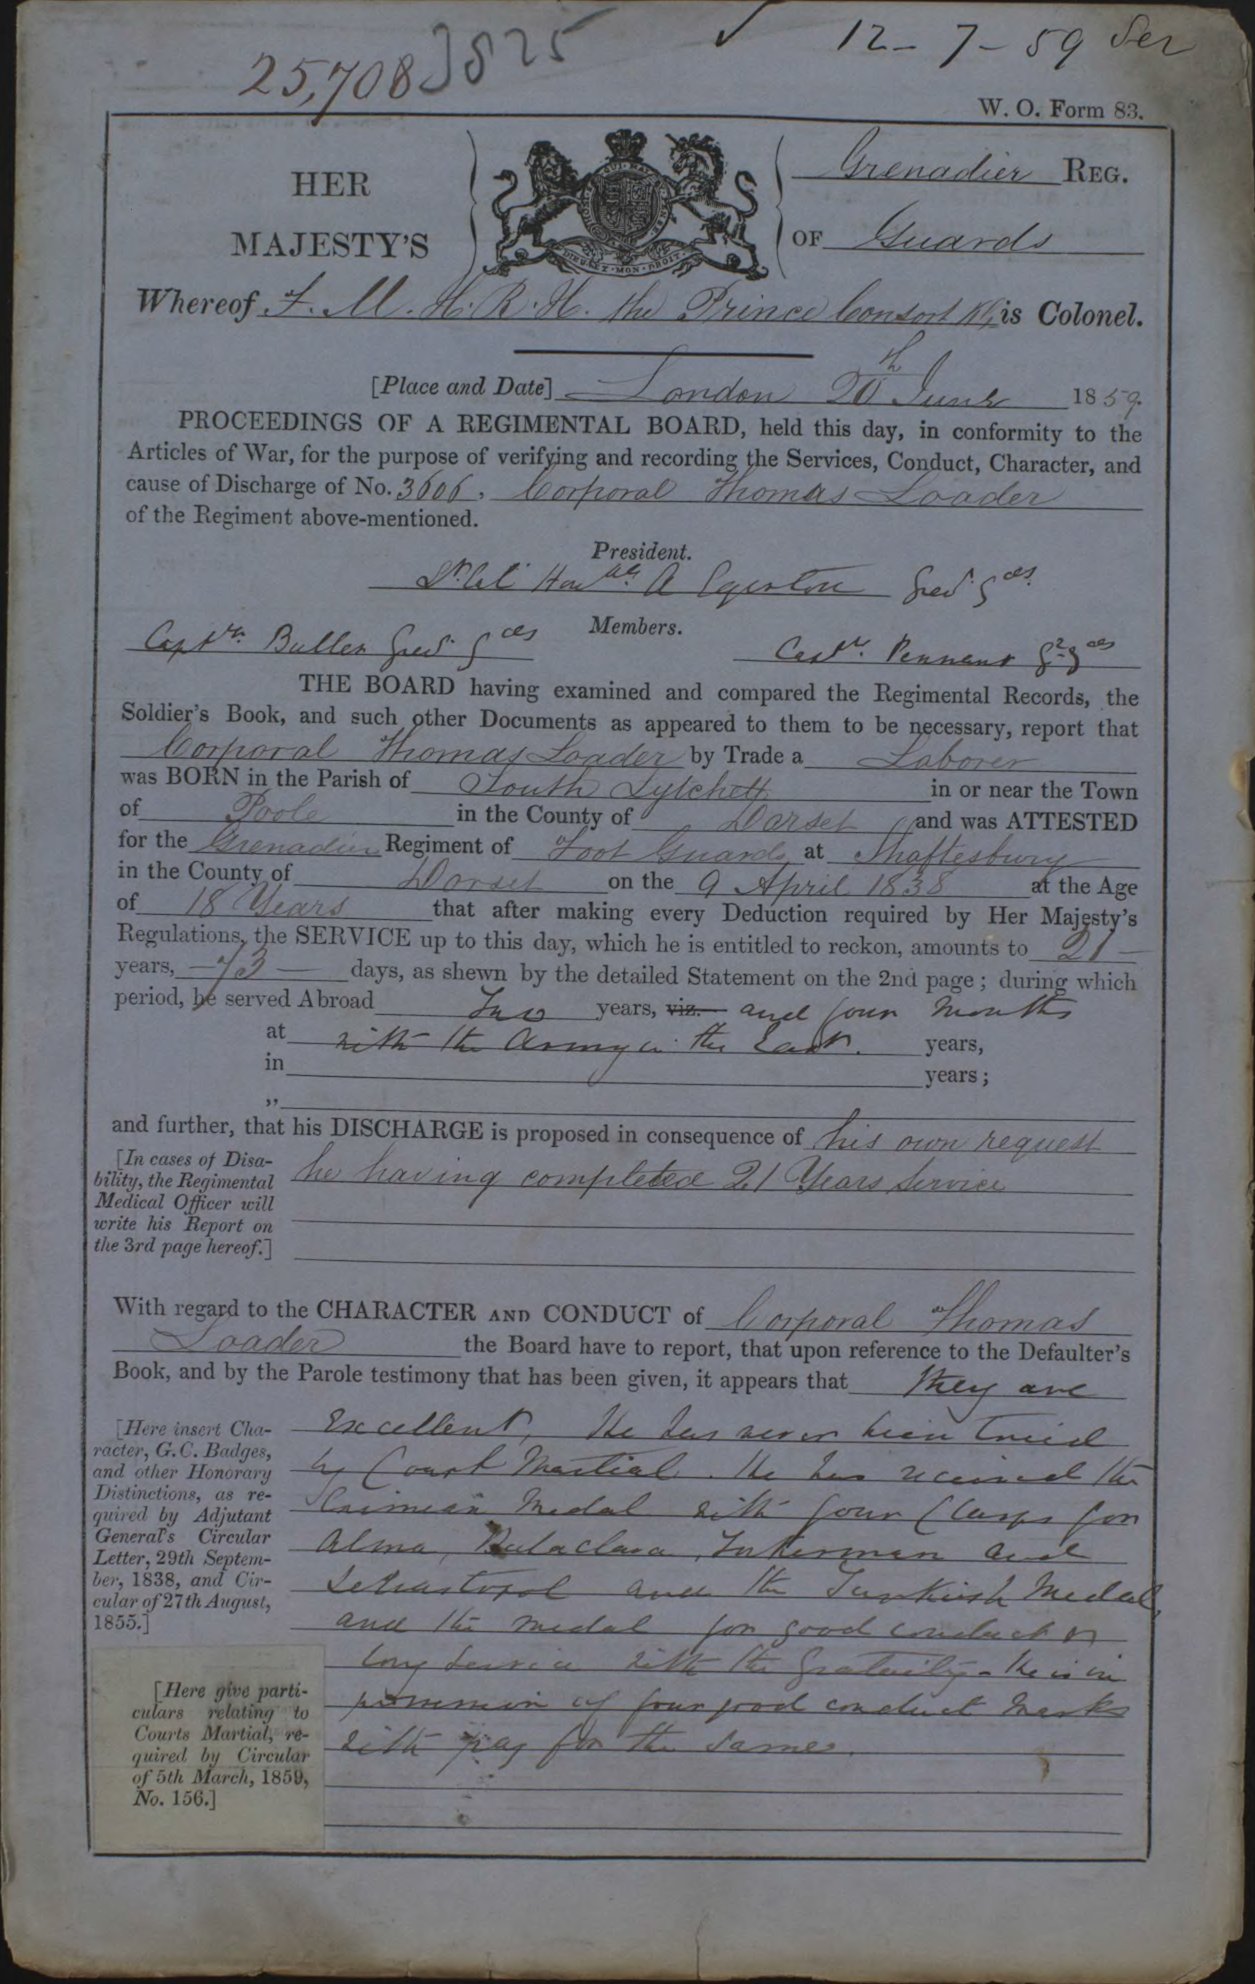 25,708
3825
12-7-59
W. O. Form 83.
HER
MAJESTY'S
DIEU ET MON DROIT
Grenadier REG.
OF Guards
Whereof F. M. H. R. H. the Prince Consort KG is Colonel.
[Place and Date] London 20th June 1859.
PROCEEDINGS OF A REGIMENTAL BOARD, held this day, in conformity to the
Articles of War, for the purpose of verifying and recording the Services, Conduct, Character, and
cause of Discharge of No. 3606. Corporal Thomas Loader
of the Regiment above-mentioned.
President.
Lt. Col. Honble. A Egerton Gred. Gds.
Members.
Captn. Buller Gred. Gds
Captn. Pennant G. Gds
THE BOARD having examined and compared the Regimental Records, the
Soldier's Book, and such other Documents as appeared to them to be necessary, report that
Corporal Thomas Loader by Trade a Laborer
was BORN in the Parish of South Lytchett in or near the Town
of Poole in the County of Dorset and was ATTESTED
for the Grenadier Regiment of Foot Guards at Shaftesbury
in the County of Dorset on the 9 April 1838 at the Age
of 18 Years that after making every Deduction required by Her Majesty's
Regulations, the SERVICE up to this day, which he is entitled to reckon, amounts to 21
years, 73 days, as shewn by the detailed Statement on the 2nd page; during which
period, he served Abroad Two years, viz. and four months
at with the Army in the East. years,
in years;
„
and further, that his DISCHARGE is proposed in consequence of his own request
[In cases of Disa-
bility, the Regimental
Medical Officer will
write his Report on
the 3rd page hereof.]
he having completed 21 Years Service
With regard to the CHARACTER AND CONDUCT of Corporal Thomas
Loader the Board have to report, that upon reference to the Defaulter's
Book, and by the Parole testimony that has been given, it appears that they are
[Here insert Cha-
racter, G. C. Badges,
and other Honorary
Distinctions, as re-
quired by Adjutant
General's Circular
Letter, 29th Septem-
ber, 1838, and Cir-
cular of 27th August,
1855.]
Excellent, He has never been tried
by Court Martial. He has received the
Crimean Medal with four Clasps for
Alma, Balaclava, Inkerman and
Sebastopol and the Turkish Medal,
and the medal for good conduct &
long service with the gratuity - He is in
possession of four good conduct marks
with pay for the same.
[Here give parti-
culars relating to
Courts Martial, re-
quired by Circular
of 5th March, 1859,
No. 156.]